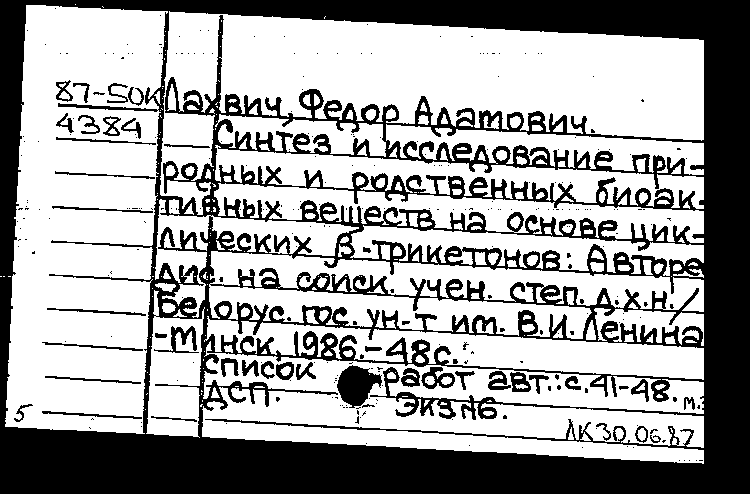 87-50к Лахвич, Федор Адамович.
4384 Синтез и исследование при-
родных и родственных биоак-
тивных веществ на основе цик-
лических β-трикетонов: Авторе
дис. на соиск. учен. степ. д.х.н./
Белорус. гос. ун-т им. В.И. Ленина
-Минск, 1986.-48с.
список работ авт.: с.41-48.
ДСП. Экз №6.
5 ЛК 30.06.87